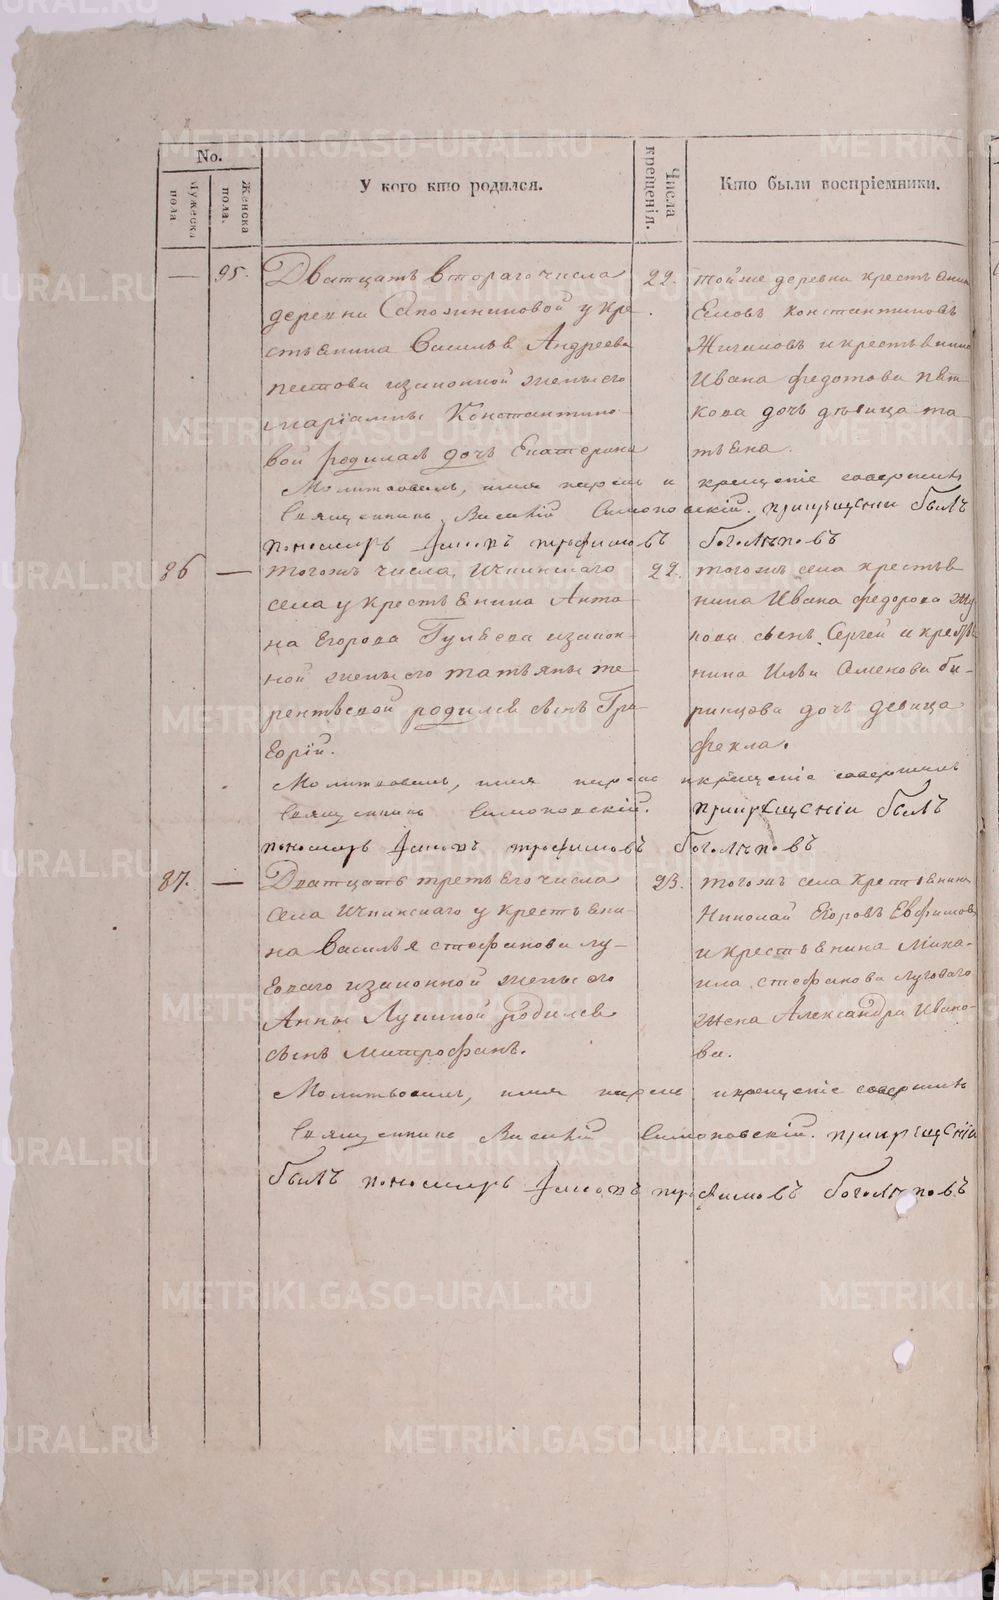 No.
Мужеска пола
Женска пола.
У кого кто родился.
Числа крещенія.
Кто были воспріемники.
— 95.
Дватцать втораго числа
деревни Сапожниковой у кре
стьянина Василья Андреева
изаконной жены его
маріамны Константино
вой родилась дочь Екатерина
22.
тойже деревни крестьянин
Константиновъ
Жигаловъ и крестьянина
Ивана федотова пят
кова дочь дѣвица та
тьяна.
Молитвовалъ, имя нареч и крещеніе совершилъ
Священникъ Василій Симоновскій. прикрещении былъ
пономарь трофимовъ боголѣповъ
86 —
тогожъ числа, Ичкинскаго
села у крестьянина Анто
на Егорова Гуляева изакон
ной жены его татьяны те
рентьевой родился сынъ Гри
горій.
22.
тогожъ села крестья
нина Ивана федорова жу
кова сынъ Сергей и крестья
нина Ильи Семенова би
ринцова дочь девица
фекла.
Молитвовалъ, имя нарече икрещеніе совершилъ
Священникъ Симоновскій. прикрещеніи былъ
пономарь трофимовъ боголѣповъ
87. —
Дватцать третьего числа
села Ичкинскаго у крестьяни
на Василья стефанова лу
говаго изаконной жены его
Анны Лукиной родился
сынъ митрофанъ.
23.
тогожъ села крестьянин
Николай Егоровъ Евфимов
и крестьянина Миха
ила стефанова луговаго
жена Александра Ивано
ва.
Молитвовалъ, имя нарече икрещеніе совершилъ
Священникъ Василій Симоновскій. прикрещеніи
былъ пономарь трофимовъ боголѣповъ
METRIKI.GASO-URAL.RU